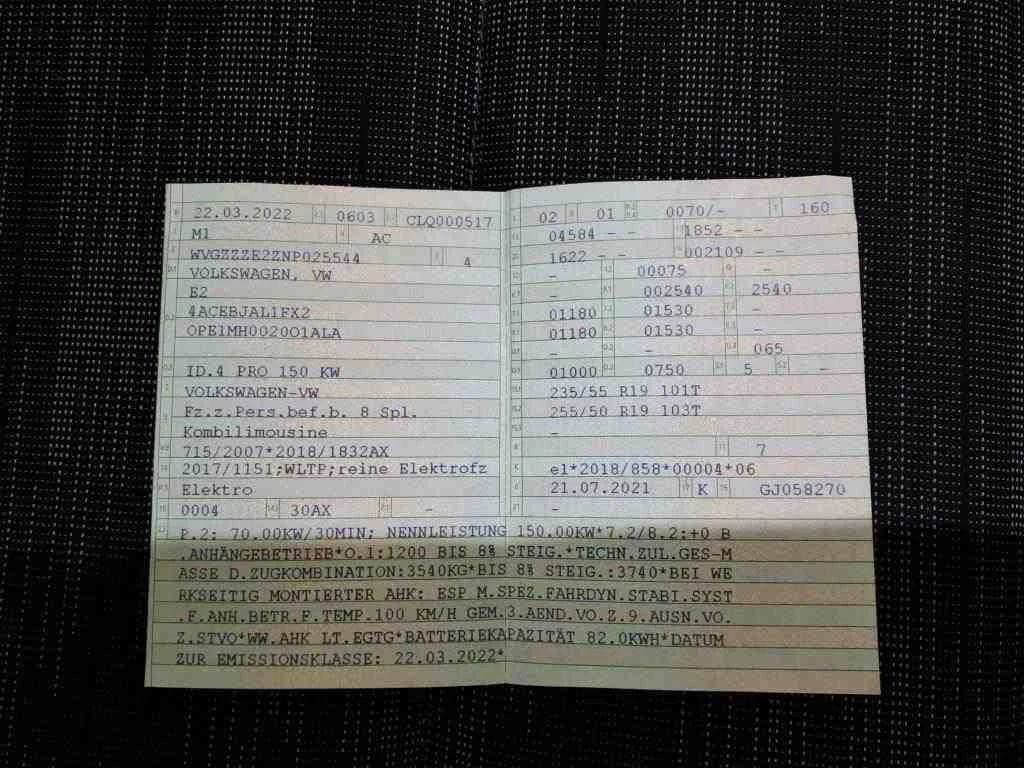 22.03.2022 0603 CLQ000517
M1 AC
WVGZZZE2ZNP025544 4
VOLKSWAGEN, VW
E2
4ACEBJAL1FX2
OPE1MH0020O1ALA
ID.4 PRO 150 KW
VOLKSWAGEN-VW
Fz.z.Pers.bef.b. 8 Spl.
Kombilimousine
715/2007*2018/1832AX
2017/1151;WLTP;reine Elektrofz
Elektro
0004 30AX -
02 01 0070/- 160
04584 - - 1852 - -
1622 - - 002109 - -
- 00075 -
- 002540 2540
01180 01530 -
01180 01530 -
- - 065
01000 0750 5 -
235/55 R19 101T
255/50 R19 103T
-
7
e1*2018/858*00004*06
21.07.2021 K GJ058270
-
P.2: 70.00KW/30MIN; NENNLEISTUNG 150.00KW*7.2/8.2:+0 B
.ANHÄNGEBETRIEB*O.1:1200 BIS 8% STEIG.*TECHN.ZUL.GES-M
ASSE D.ZUGKOMBINATION:3540KG*BIS 8% STEIG.:3740*BEI WE
RKSEITIG MONTIERTER AHK: ESP M.SPEZ.FAHRDYN.STABI.SYST
.F.ANH.BETR.F.TEMP.100 KM/H GEM.3.AEND.VO.Z.9.AUSN.VO.
Z.STVO*WW.AHK LT.EGTG*BATTERIEKAPAZITÄT 82.0KWH*DATUM
ZUR EMISSIONSKLASSE: 22.03.2022*